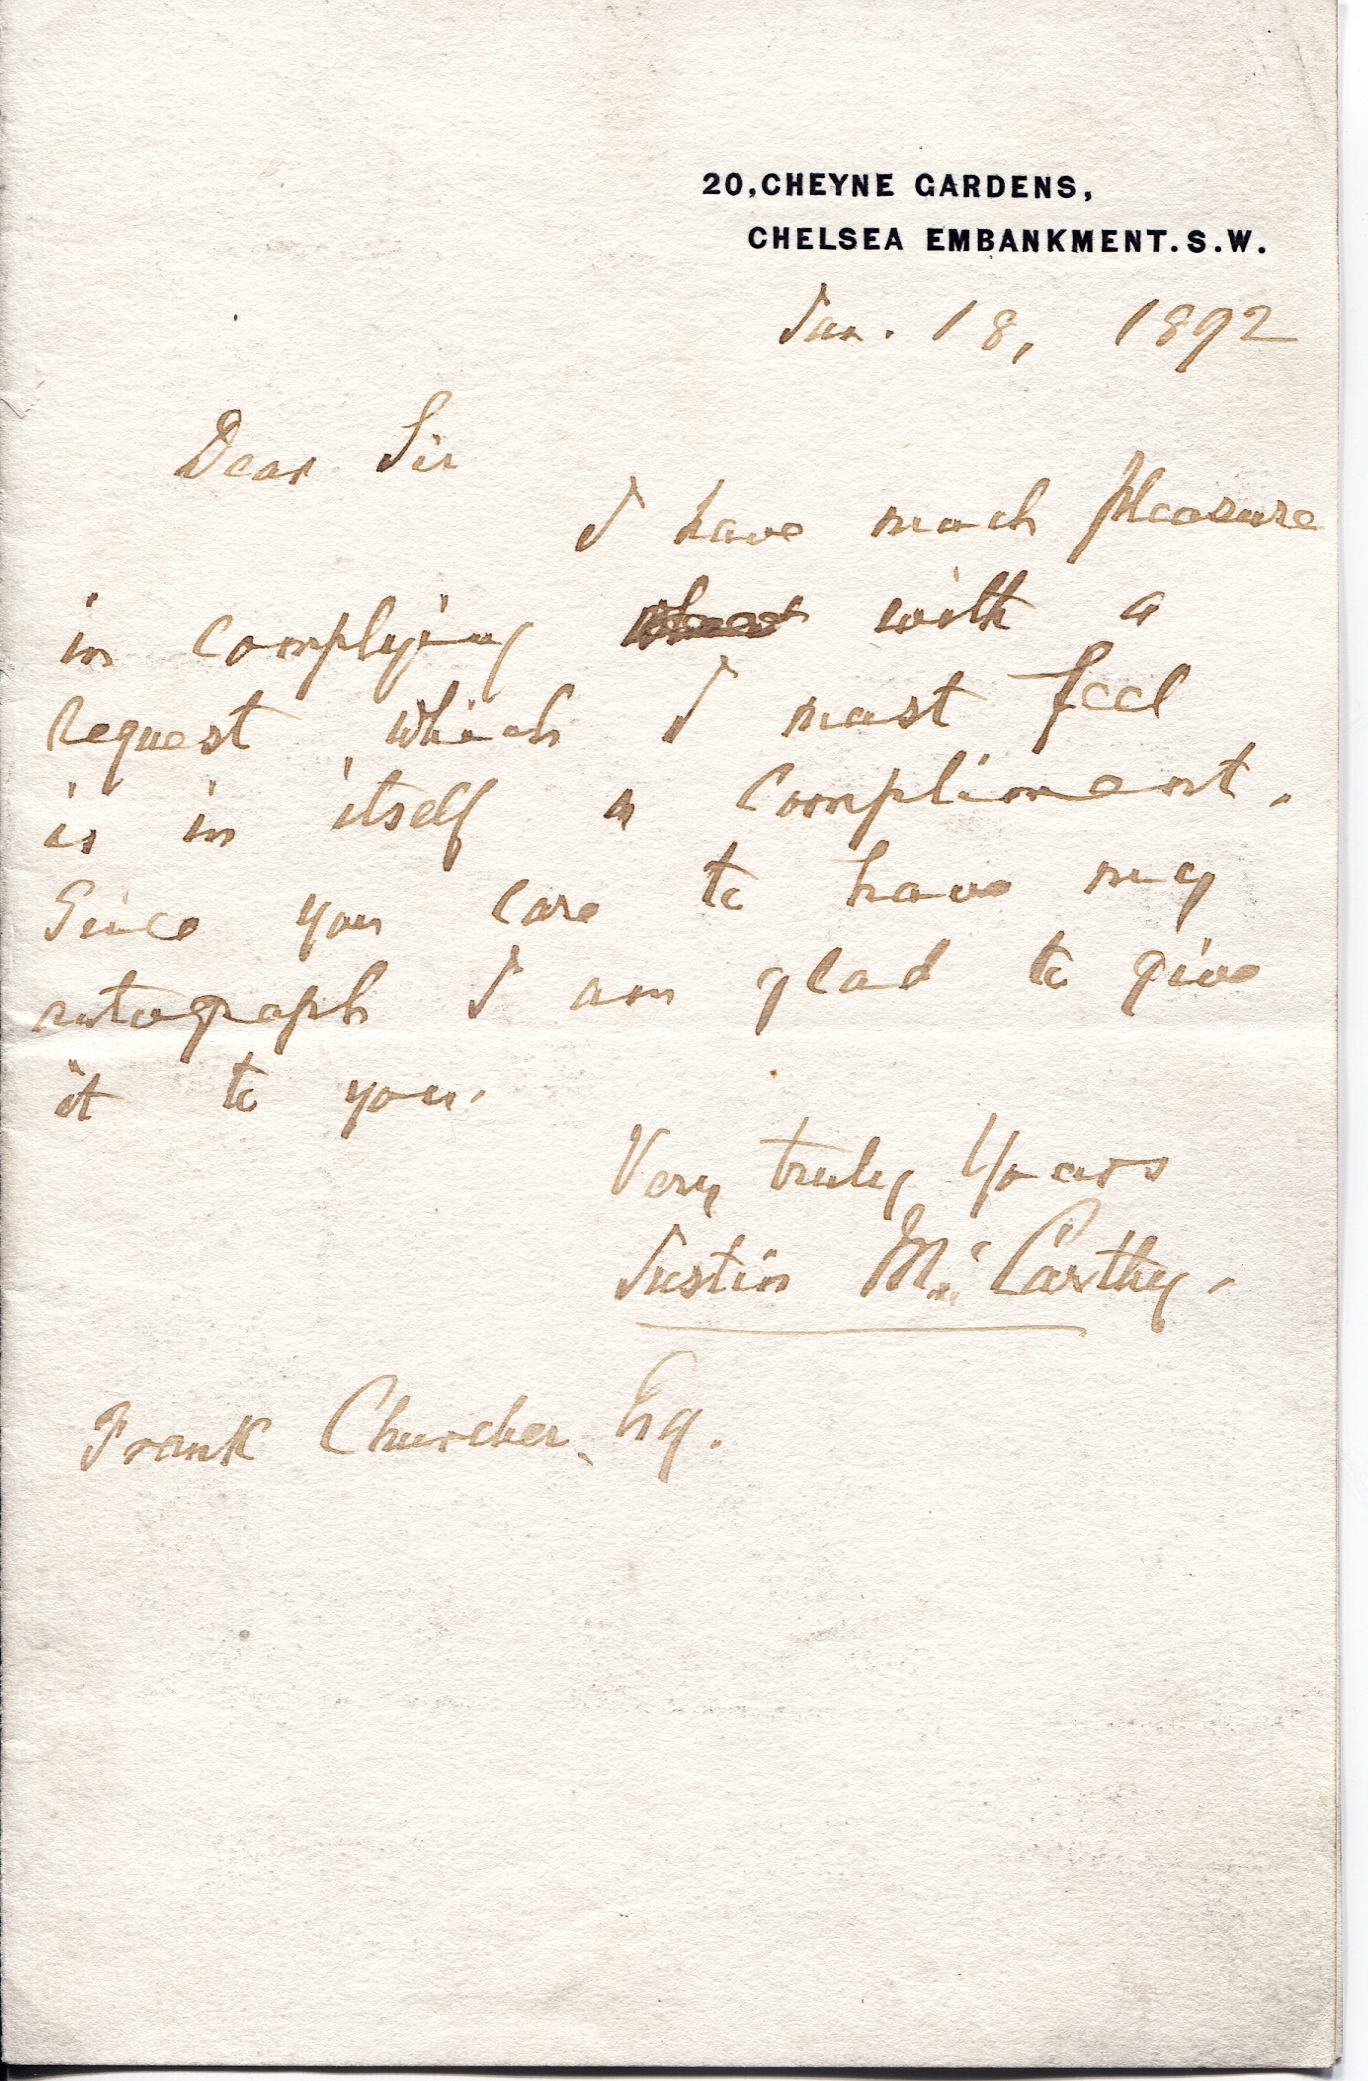 20, CHEYNE GARDENS,
CHELSEA EMBANKMENT. S.W.
Jan. 18, 1892
Dear Sir
I have much pleasure
in complying with a
request which I must feel
is in itself a compliment.
Since you care to have my
autograph I am glad to give
it to you.
Very truly yours
Justin McCarthy.
Frank Churcher, Esq.